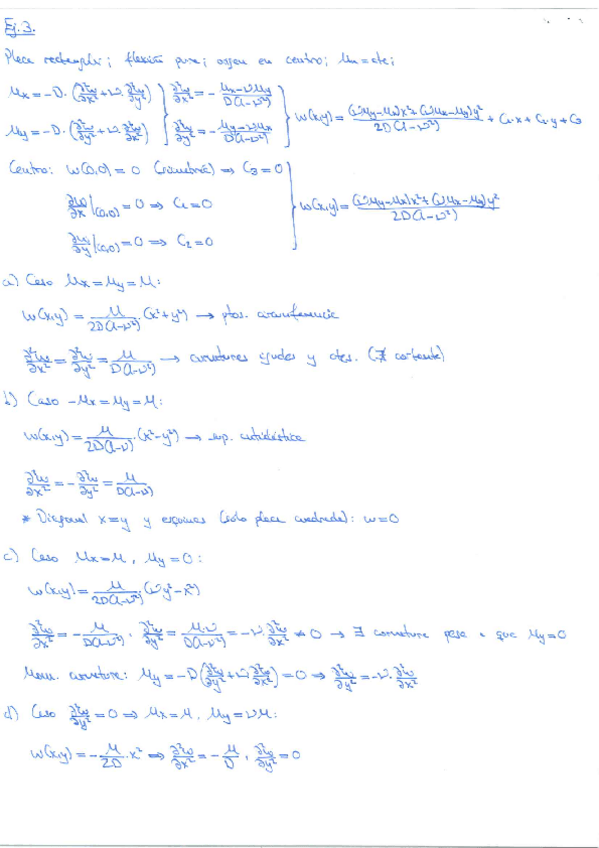 Ej. 3.
Placa rectangular; flexión pura; origen en centro; Mn = cte;
Mx = -D·(∂²w/∂x² + ν·∂²w/∂y²) } ∂²w/∂x² = -(Mx-νMy)/(D(1-ν²)) } w(x,y) = ((νMy-Mx)x² + (νMx-My)y²)/(2D(1-ν²)) + C₁·x + C₂·y + C₃
My = -D·(∂²w/∂y² + ν·∂²w/∂x²) } ∂²w/∂y² = -(My-νMx)/(D(1-ν²))
Centro: w(0,0) = 0 (simetría) ⇒ C₃ = 0
∂w/∂x|(0,0) = 0 ⇒ C₁ = 0 } w(x,y) = ((νMy-Mx)x² + (νMx-My)y²)/(2D(1-ν²))
∂w/∂y|(0,0) = 0 ⇒ C₂ = 0
a) Caso Mx = My = M:
w(x,y) = M/(2D(1-ν²))·(x²+y²) → ptos. circunferencia
∂²w/∂x² = ∂²w/∂y² = M/(D(1-ν²)) → curvaturas iguales y ctes. (∄ cortante)
b) Caso -Mx = My = M:
w(x,y) = M/(2D(1-ν))·(x²-y²) → sup. anticlástica
∂²w/∂x² = -∂²w/∂y² = M/(D(1-ν))
* Diagonal x=y y esquinas (solo placa cuadrada): w=0
c) Caso Mx = M, My = 0:
w(x,y) = M/(2D(1-ν²))·(νy²-x²)
∂²w/∂x² = -M/(D(1-ν²)), ∂²w/∂y² = M·ν/(D(1-ν²)) = -ν·∂²w/∂x² ≠ 0 → ∃ curvatura pese a que My=0
Mom. curvatura: My = -D(∂²w/∂y² + ν·∂²w/∂x²) = 0 ⇒ ∂²w/∂y² = -ν·∂²w/∂x²
d) Caso ∂²w/∂y² = 0 ⇒ Mx = M, My = νM:
w(x,y) = -M/(2D)·x² ⇒ ∂²w/∂x² = -M/D, ∂²w/∂y² = 0